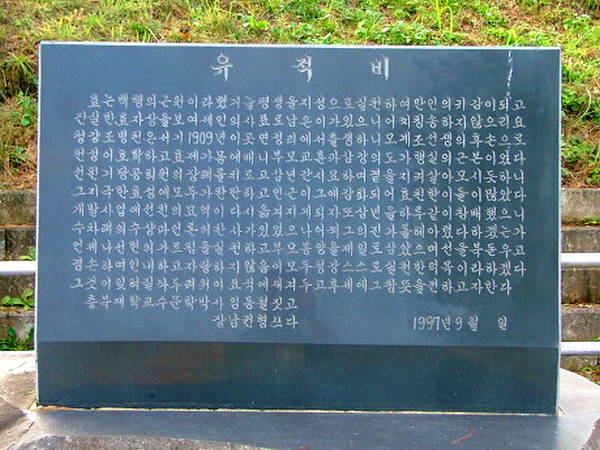 유적비
효는백행의근원이라했거늘평생을지성으로실천하여만인의귀감이되고
진실한효자상을보여세인의사표로남은이가있으니어찌칭송하지않으리요
청강조병천은서기1909년이곳연정리에서출생하니모계조선생의후손으로
천성이호학하고효제가몸에배니부모교훈과삼강의도가행실의근본이였다
선친기당공회원의장례를치르고삼년간시묘하며곁을지켜살아모시듯하니
그지극한효성에모두가완탄하고인근이그에감화되어효친한이들이많았다
개발사업에선친의묘역이다시옮겨지게되자또삼년을하루같이참배했으니
수차례의수상과언론의찬사가있었으나어찌그의진가를헤아렸다하겠는가
언제나선현의가르침을실천하고부모봉양을제일로삼았으며선을북돋우고
겸손하며인내하고자랑하지않음이모두청강스스로실천한덕목이라하겠다
그것이잊혀질까두려워이묘석에새겨두고후세에그참뜻을전하고자한다
충북대학교수문학박사 임동철짓고
장남권형쓰다 1997년 9월 일